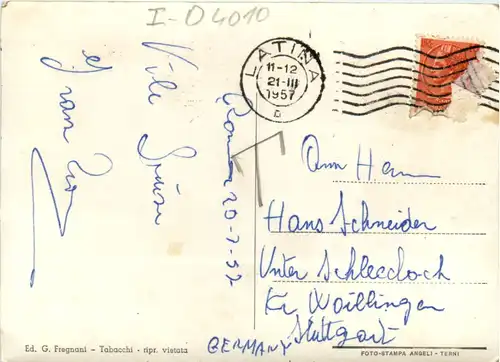 I-O 4010
LATINA
11-12
21-III
1957
Roma 20-3-57
Viele Grüsse
An Herrn
Hans Schneider
Unter Schlechtbach
Kr Waiblingen
Stuttgart
GERMANY
Ed. G. Fregnani - Tabacchi - ripr. vietata
FOTO-STAMPA ANGELI - TERNI